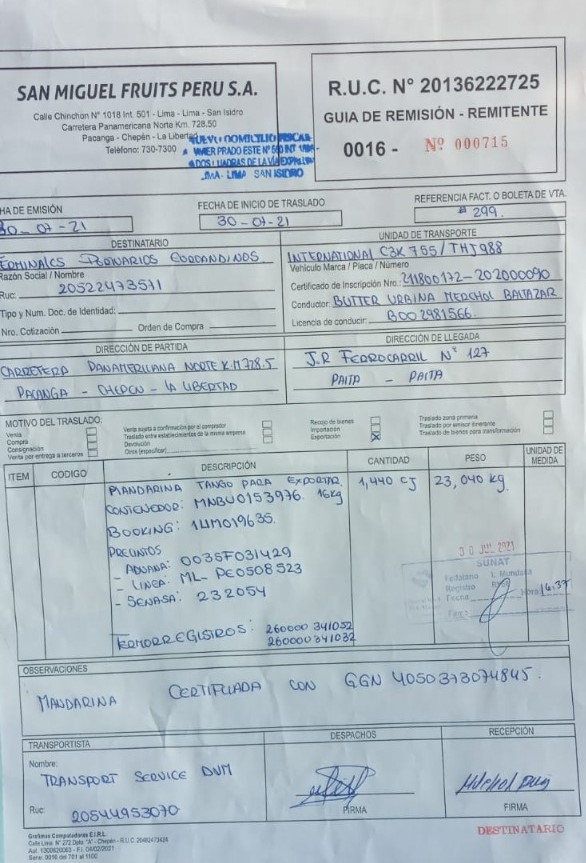 SAN MIGUEL FRUITS PERU S.A.
Calle Chinchon N° 1018 Int. 501 - Lima - Lima - San Isidro
Carretera Panamericana Norte Km. 728.50
Pacanga - Chepén - La Libertad
Teléfono: 730-7300
NUEVO DOMICILIO FISCAL
JAVIER PRADO ESTE N° 560 INT
LIMA. LIMA SAN ISIDRO
R.U.C. N° 20136222725
GUIA DE REMISIÓN - REMITENTE
0016 - Nº 000715
HA DE EMISIÓN
30-07-21
FECHA DE INICIO DE TRASLADO
30-07-21
REFERENCIA FACT. O BOLETA DE VTA.
# 299.
DESTINATARIO
TERMINALES PORTUARIOS EUROANDINOS
Razón Social / Nombre
Ruc: 20522473571
Tipo y Num. Doc. de Identidad:
Nro. Cotización: Orden de Compra
UNIDAD DE TRANSPORTE
INTERNATIONAL C3K 755 / THJ988
Vehículo Marca / Placa / Número
Certificado de Inscripción Nro.:
Conductor: BUTTER URBINA MERCHOL BALTAZAR
Licencia de conducir: B002981566.
DIRECCIÓN DE PARTIDA
CARRETERA PANAMERICANA NORTE K.M 728.5
PACANGA - CHEPEN - LA LIBERTAD
DIRECCIÓN DE LLEGADA
J.R FERROCARRIL N° 127
PAITA - PAITA
MOTIVO DEL TRASLADO:
Venta
Compra
Consignación
Venta por entrega a terceros
Venta sujeta a confirmación por el comprador
Traslado entre establecimientos de la misma empresa
Devolución
Otros (especificar)
Recojo de bienes
Importación
Exportación X
Traslado zona primaria
Traslado por emisor itinerante
Traslado de bienes para transformación
ITEM CODIGO DESCRIPCIÓN CANTIDAD PESO UNIDAD DE MEDIDA
MANDARINA TANGO PARA EXPORTAR 1,440 CJ 23,040 kg.
CONTENEDOR: MNBU0153976. 16kg
BOOKING: 1LIM019635.
PRECINTOS
- ADUANA: 0035F031429
- LINEA: ML-PE0508523
- SENASA: 232054
TERMORREGISTROS: 260000 341052
260000 341032
30 JUL 2021
SUNAT
Registro
Hora 16.37
Firma
OBSERVACIONES
MANDARINA CERTIFICADA CON GGN 4050373074845.
TRANSPORTISTA
Nombre:
TRANSPORT SERVICE DUM
Ruc: 20544953070
DESPACHOS
FIRMA
RECEPCIÓN
FIRMA
Grafimax Computadores E.I.R.L.
Calle Lima N° 272 Dpto. "A" - Chepén - R.U.C. 20482473426
Serie: 0016 del 701 al 1100
DESTINATARIO